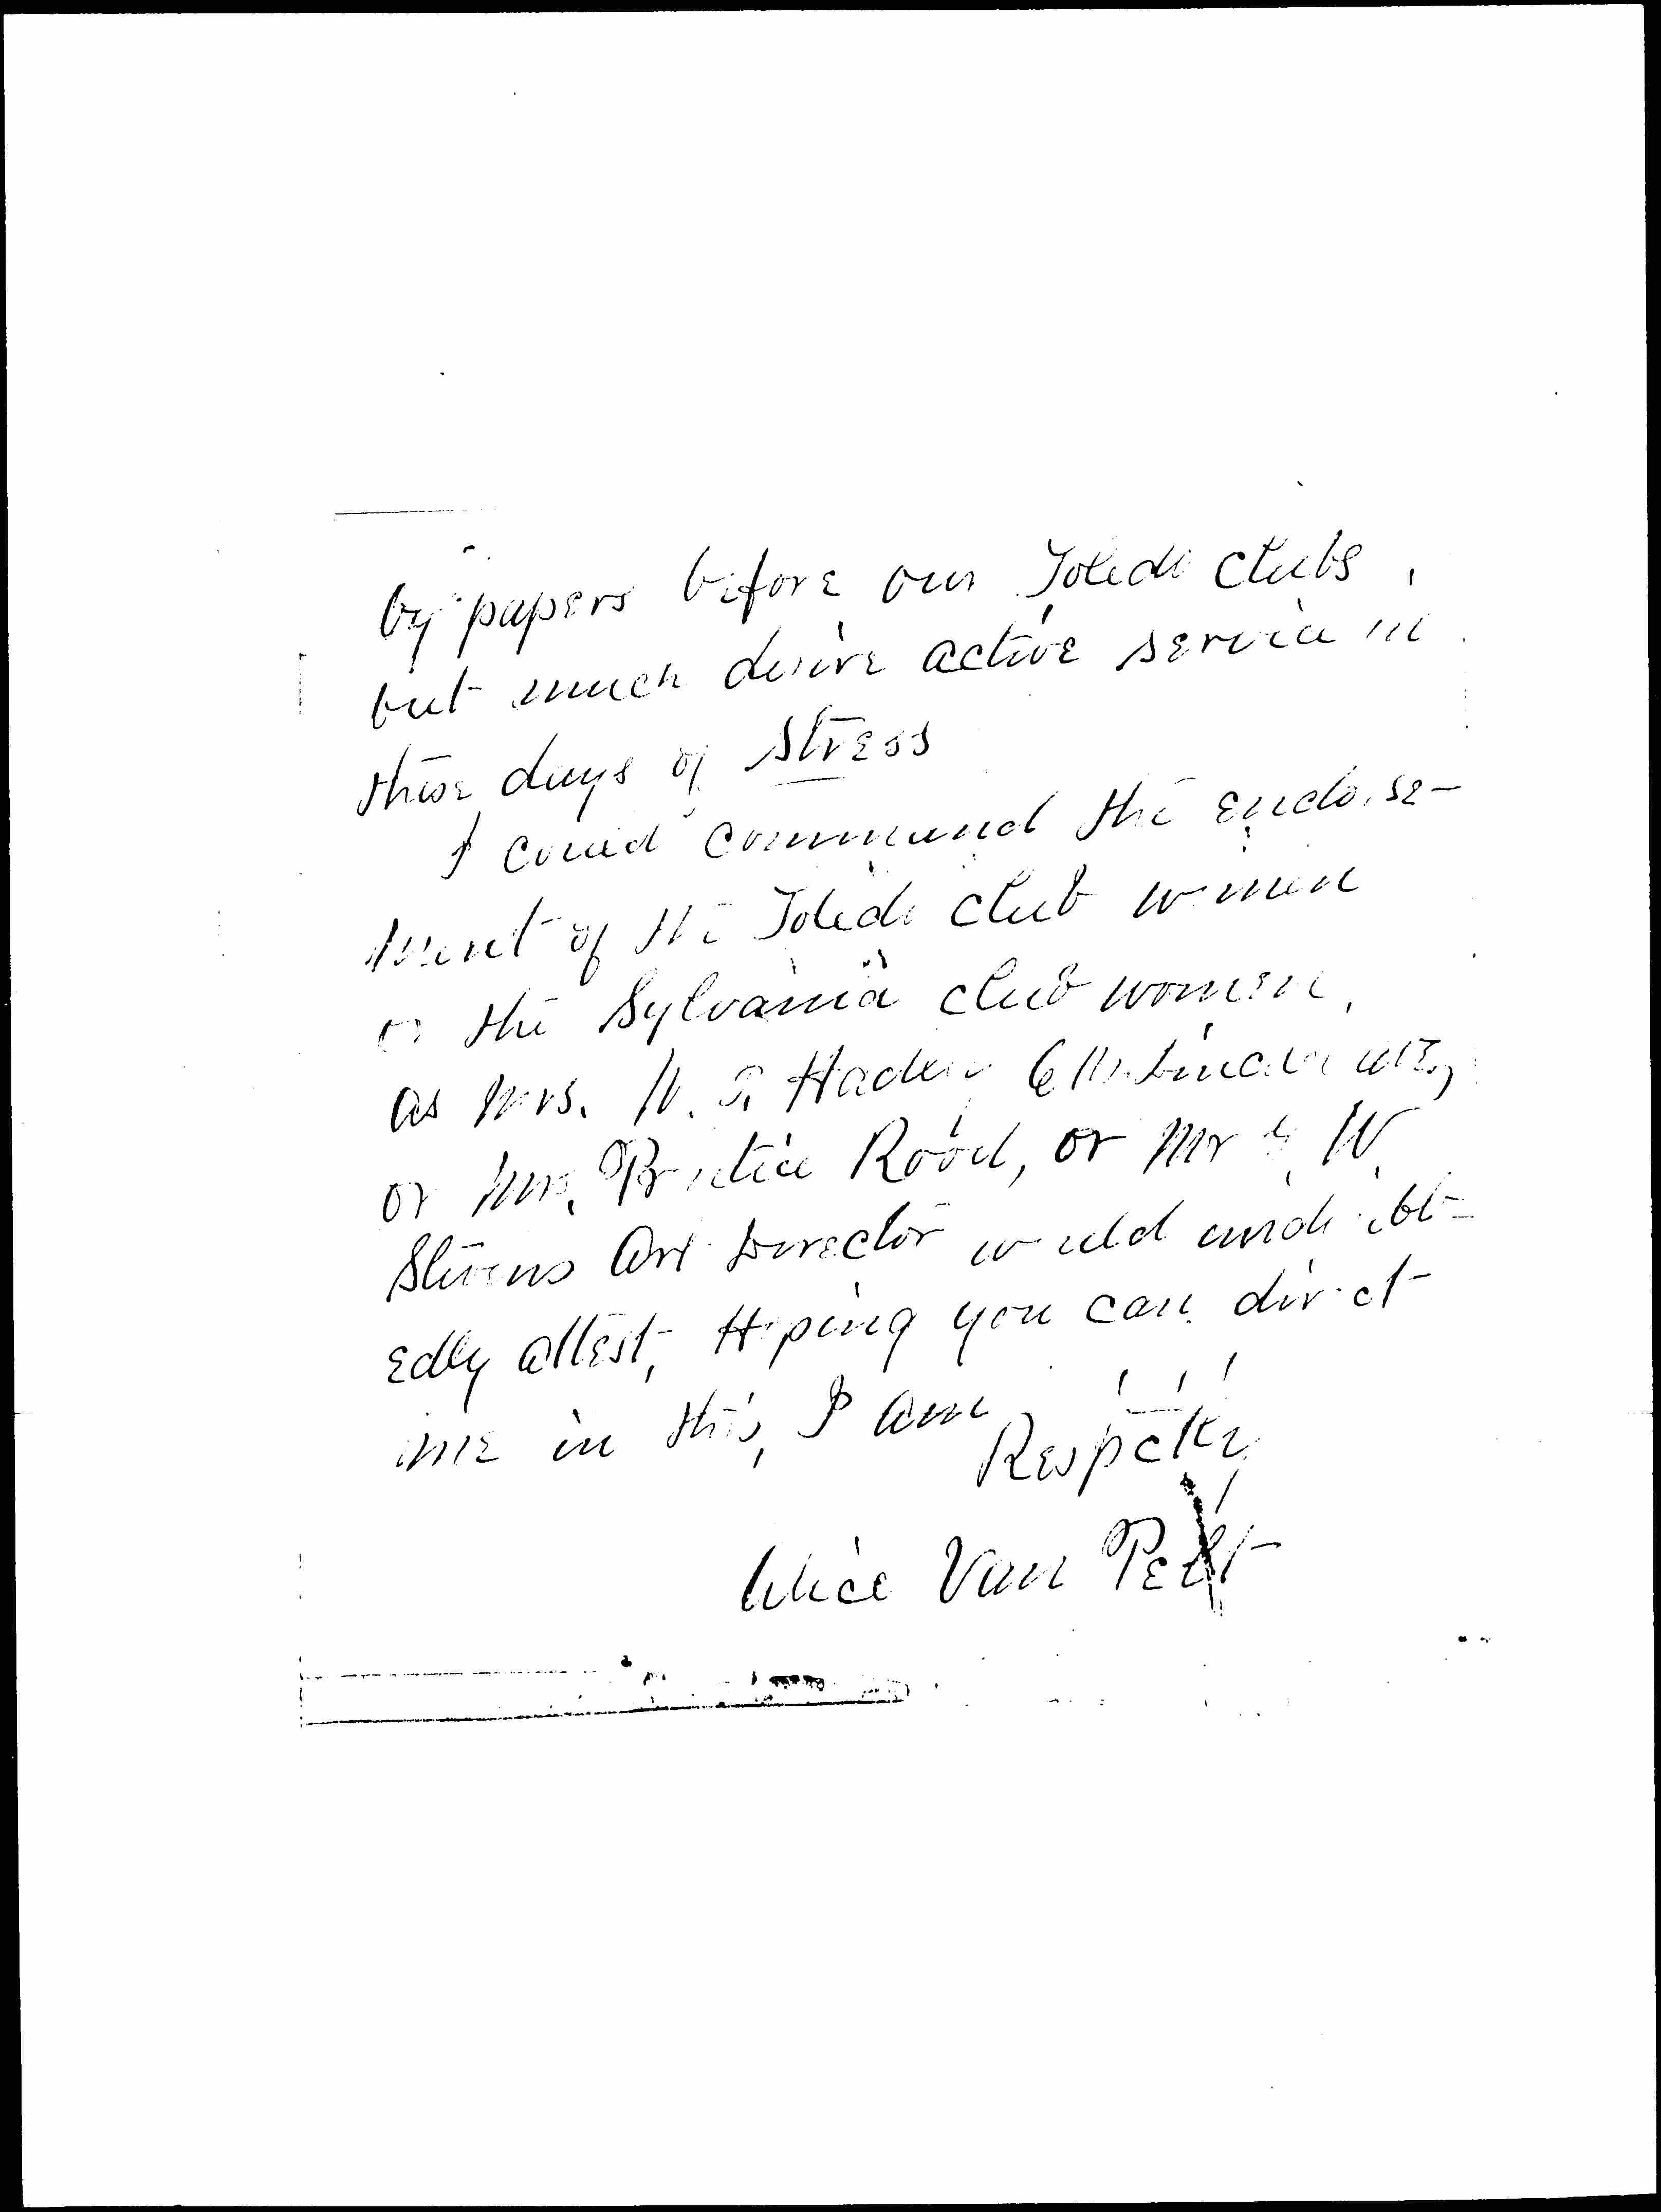 by papers before our Toledo clubs,
but much desire active service in
these days of stress
I could command the endorse-
ment of the Toledo club women
or the Sylvania club women,
as Mrs. W. Lincoln ave.,
or Mrs. Prentice Rood, or Mr G. W.
Stevens Art Director would undoubt-
edly attest, Hoping you can direct
me in this, I am
Respctly
Alice Van Pelt